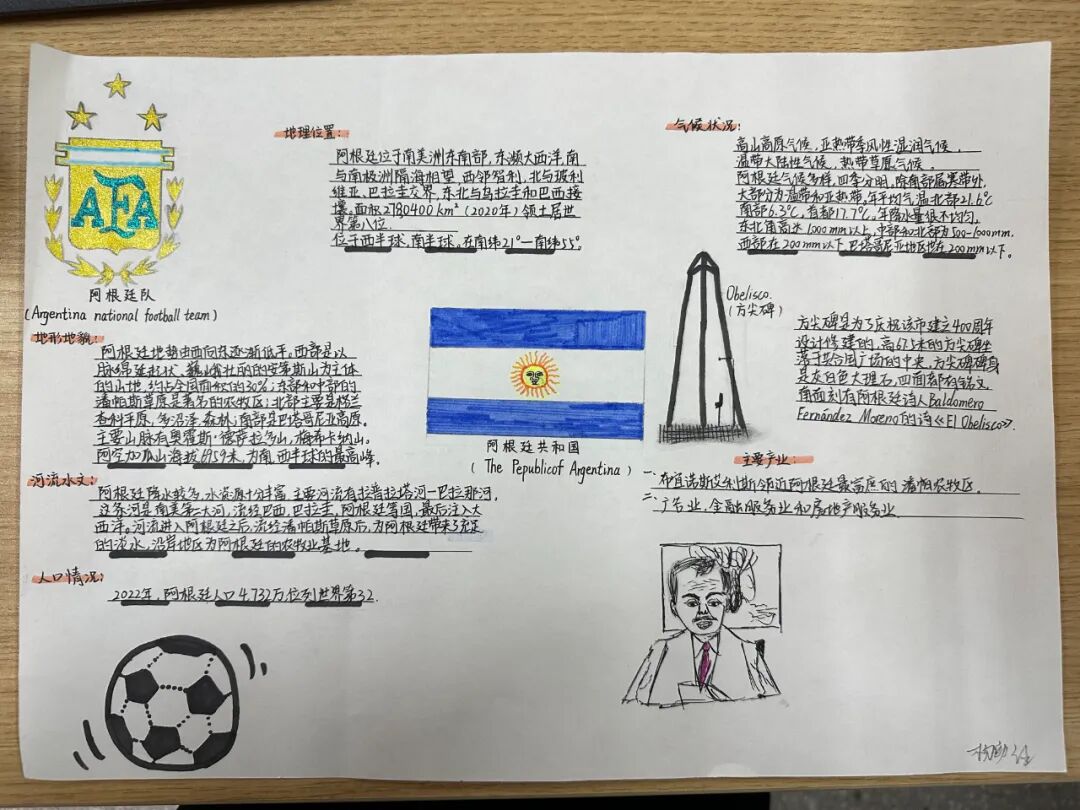 AFA
阿根廷队
(Argentina national football team)
地理位置:
阿根廷位于南美洲东南部,东濒大西洋,南
与南极洲隔海相望,西邻智利,北与玻利
维亚、巴拉圭交界,东北与乌拉圭和巴西接
壤。面积2780400km²(2020年)领土居世
界第八位
位于西半球,南半球。在南纬21°—南纬55°。
气候状况:
高山高原气候、亚热带季风性湿润气候、
温带大陆性气候、热带草原气候。
阿根廷气候多样,四季分明,除南部属寒带外,
大部分为温带和亚热带。年平均气温北部21.6℃
南部6.3℃,首都17.7℃。年降水量很不均匀,
东北角高达1000mm以上,中部和北部为500-1000mm.
西部在200mm以下,巴塔哥尼亚地区也在200mm以下。
地形地貌:
阿根廷地势由西向东逐渐低平。西部是以
脉绵延起伏、巍峨壮丽的安第斯山为主体
的山地,约占全国面积的30%;东部和中部的
潘帕斯草原是著名的农牧区;北部主要是格兰
查科平原,多沼泽、森林;南部是巴塔哥尼亚高原。
主要山脉有奥霍斯·德萨拉多山、梅希卡纳山。
阿空加瓜山海拔6959米,为南、西半球的最高峰。
阿根廷共和国
( The Pepublicof Argentina )
Obelisco.
(方尖碑)
方尖碑是为了庆祝该市建立400周年
设计修建的。高67.5米的方尖碑坐
落于共和国广场的中央。方尖碑碑身
是灰白色大理石,四面都有铭文
南面刻有阿根廷诗人Baldomero
Fernández Moreno的诗《El Obelisco》.
河流水文:
阿根廷降水较多,水资源十分丰富,主要河流有拉普拉塔河—巴拉那河,
这条河是南美第二大河,流经巴西、巴拉圭、阿根廷等国,最后注入大
西洋。河流进入阿根廷之后,流经潘帕斯草原后,为阿根廷带来了充足
的淡水,沿岸地区为阿根廷的农牧业基地。
主要产业:
一、布宜诺斯艾利斯邻近阿根廷最富庶的潘帕农牧区。
二、广告业、金融服务业和房地产服务业
人口情况:
2022年,阿根廷人口4,732万位列世界第32.